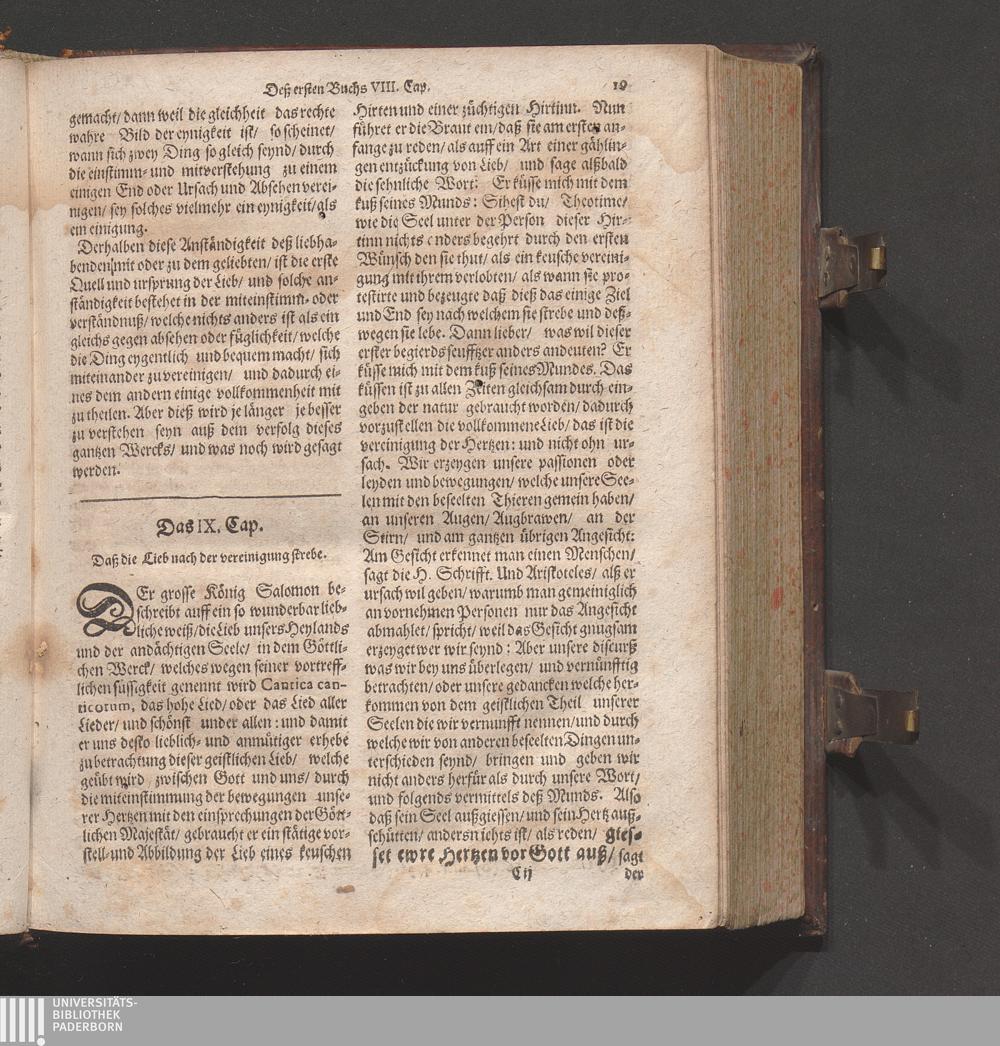 Deß ersten Buchs VIII. Cap. 19
gemacht/ dann weil die gleichheit das rechte
wahre Bild der eynigkeit ist/ so scheinet/
wann sich zwey Ding so gleich seynd/ durch
die einstimm- und mitverstehung zu einem
einigen End oder Ursach und Absehen verei-
nigen/ sey solches vielmehr ein eynigkeit/ als
ein einigung.
Derhalben diese Anständigkeit deß liebha-
benden mit oder zu dem geliebten/ ist die erste
Quell und ursprung der Lieb/ und solche an-
ständigkeit bestehet in der miteinstimm- oder
verständnuß/ welche nichts anders ist als ein
gleichs gegen absehen oder füglichkeit/ welche
die Ding eygentlich und bequem macht/ sich
miteinander zu vereinigen/ und dadurch ei-
nes dem andern einige vollkommenheit mit
zu theilen. Aber dieß wird je länger je besser
zu verstehen seyn auß dem verfolg dieses
gantzen Wercks/ und was noch wird gesagt
werden.
Das IX. Cap.
Daß die Lieb nach der vereinigung strebe.
DEr grosse König Salomon be-
schreibt auff ein so wunderbar lieb-
liche weiß/ die Lieb unsers Heylands
und der andächtigen Seele/ in dem Göttli-
chen Werck/ welches wegen seiner vortreff-
lichen süssigkeit genennt wird Cantica can-
ticorum, das hohe Lied/ oder das Lied aller
Lieder/ und schönst under allen: und damit
er uns desto lieblich- und anmütiger erhebe
zu betrachtung dieser geistlichen Lieb/ welche
geübt wird zwischen Gott und uns/ durch
die miteinstimmung der bewegungen unse-
rer Hertzen mit den einsprechungen der Gött-
lichen Majestät/ gebraucht er ein stätige vor-
stell- und Abbildung der Lieb eines keuschen
Hirten und einer züchtigen Hirtinn. Nun
führet er die Braut ein/ daß sie am ersten an-
fange zu reden/ als auff ein Art einer gählin-
gen entzückung von Lieb/ und sage alßbald
die sehnliche Wort: Er küsse mich mit dem
kuß seines Munds: Sihest du/ Theotime/
wie die Seel unter der Person dieser Hir-
tinn nichts anders begehrt durch den ersten
Wunsch den sie thut/ als ein keusche vereini-
gung mit ihrem verlobten/ als wann sie pro-
testirte und bezeugte daß dieß das einige Ziel
und End sey nach welchem sie strebe und deß-
wegen sie lebe. Dann lieber/ was wil dieser
erster begierds seufftzer anders andeuten? Er
küsse mich mit dem kuß seines Mundes. Das
küssen ist zu allen Zeiten gleichsam durch ein-
geben der natur gebraucht worden/ dadurch
vorzustellen die vollkommene Lieb/ das ist die
vereinigung der Hertzen: und nicht ohn ur-
sach. Wir erzeygen unsere passionen oder
leyden und bewegungen/ welche unsere See-
len mit den beseelten Thieren gemein haben/
an unseren Augen/ Augbrawen/ an der
Stirn/ und am gantzen übrigen Angesicht:
Am Gesicht erkennet man einen Menschen/
sagt die H. Schrifft. Und Aristoteles/ alß er
ursach wil geben/ warumb man gemeiniglich
an vornehmen Personen nur das Angesicht
abmahlet/ spricht/ weil das Gesicht gnugsam
erzeyget wer wir seynd: Aber unsere discurß
was wir bey uns überlegen/ und vernünfftig
betrachten/ oder unsere gedancken welche her-
kommen von dem geistlichen Theil unserer
Seelen die wir vernunfft nennen/ und durch
welche wir von anderen beseelten Dingen un-
terschieden seynd/ bringen und geben wir
nicht anders herfür als durch unsere Wort/
und folgends vermittels deß Munds. Also
daß sein Seel außgiessen/ und sein Hertz auß-
schütten/ anders nichts ist/ als reden/ gies-
set ewre Hertzen vor Gott auß/ sagt
C ij der
UNIVERSITÄTS-
BIBLIOTHEK
PADERBORN